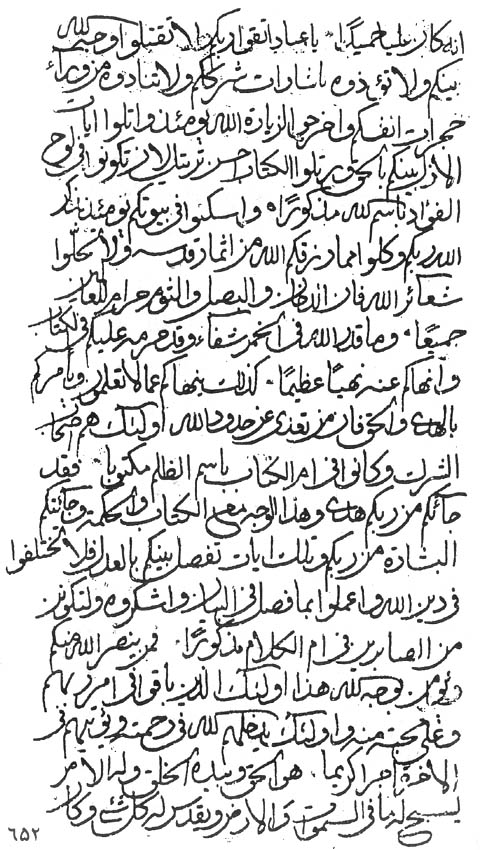 انه كان عليا حميدا يا عباد اتقوا ربكم لا تقتلوا وجه الله
بينكم ولا تؤذوه باشارات شرككم ولا تنادوه من وراء
حجرات انفسكم واخرجوا لزيارة الله يومئذ واتلوا ايات
الاذن بينكم بالحق ورتلوا الكتاب حسن ترتيل لان تكونوا في لوح
الفؤاد باسم لله مذكورا واسكنوا في بيوتكم يومئذ بذكر
الله ربكم وكلوا مما رزقكم الله من اثمار قدسه ولا تحلوا
شعائر الله فان الدخان والبصل والثوم حرام للعالمين
جميعا وما قدر الله في الخمر شفاء وقد حرمه عليكم في الكتاب
وانهاكم عنه نهيا عظيما كذلك ينهاكم عما لا تعلمون ويأمركم
بالهدى والحق فان من تعدى عن حدود الله اولئك هم اصحاب
الشرك وكانوا في ام الكتاب باسم الظلم مكتوبا فقد
جائكم من ربكم هدى وهذا الوجه معه الكتاب والحكمة وجائتكم
البشارة من ربكم وتلك ايات تفصل بينكم بالعدل فلا تختلفوا
في دين الله واعملوا بما فصل في البيان واشكروه ولتكونن
من الصابرين في ام الكلام مذكورا فمن ينصر الله منكم
ويؤمن بوجه لله هذا اولئك الذين باقوا في امر ربهم
وعلى محبة منه واولئك يدخلهم لله في رحمته ويؤتيهم في
الاخرة اجرا كريما هو الحق وبيده الخلق وله الامر
يسبح له ما في السموات والارض ويقدس له كل شئ وكان
٦٥٢